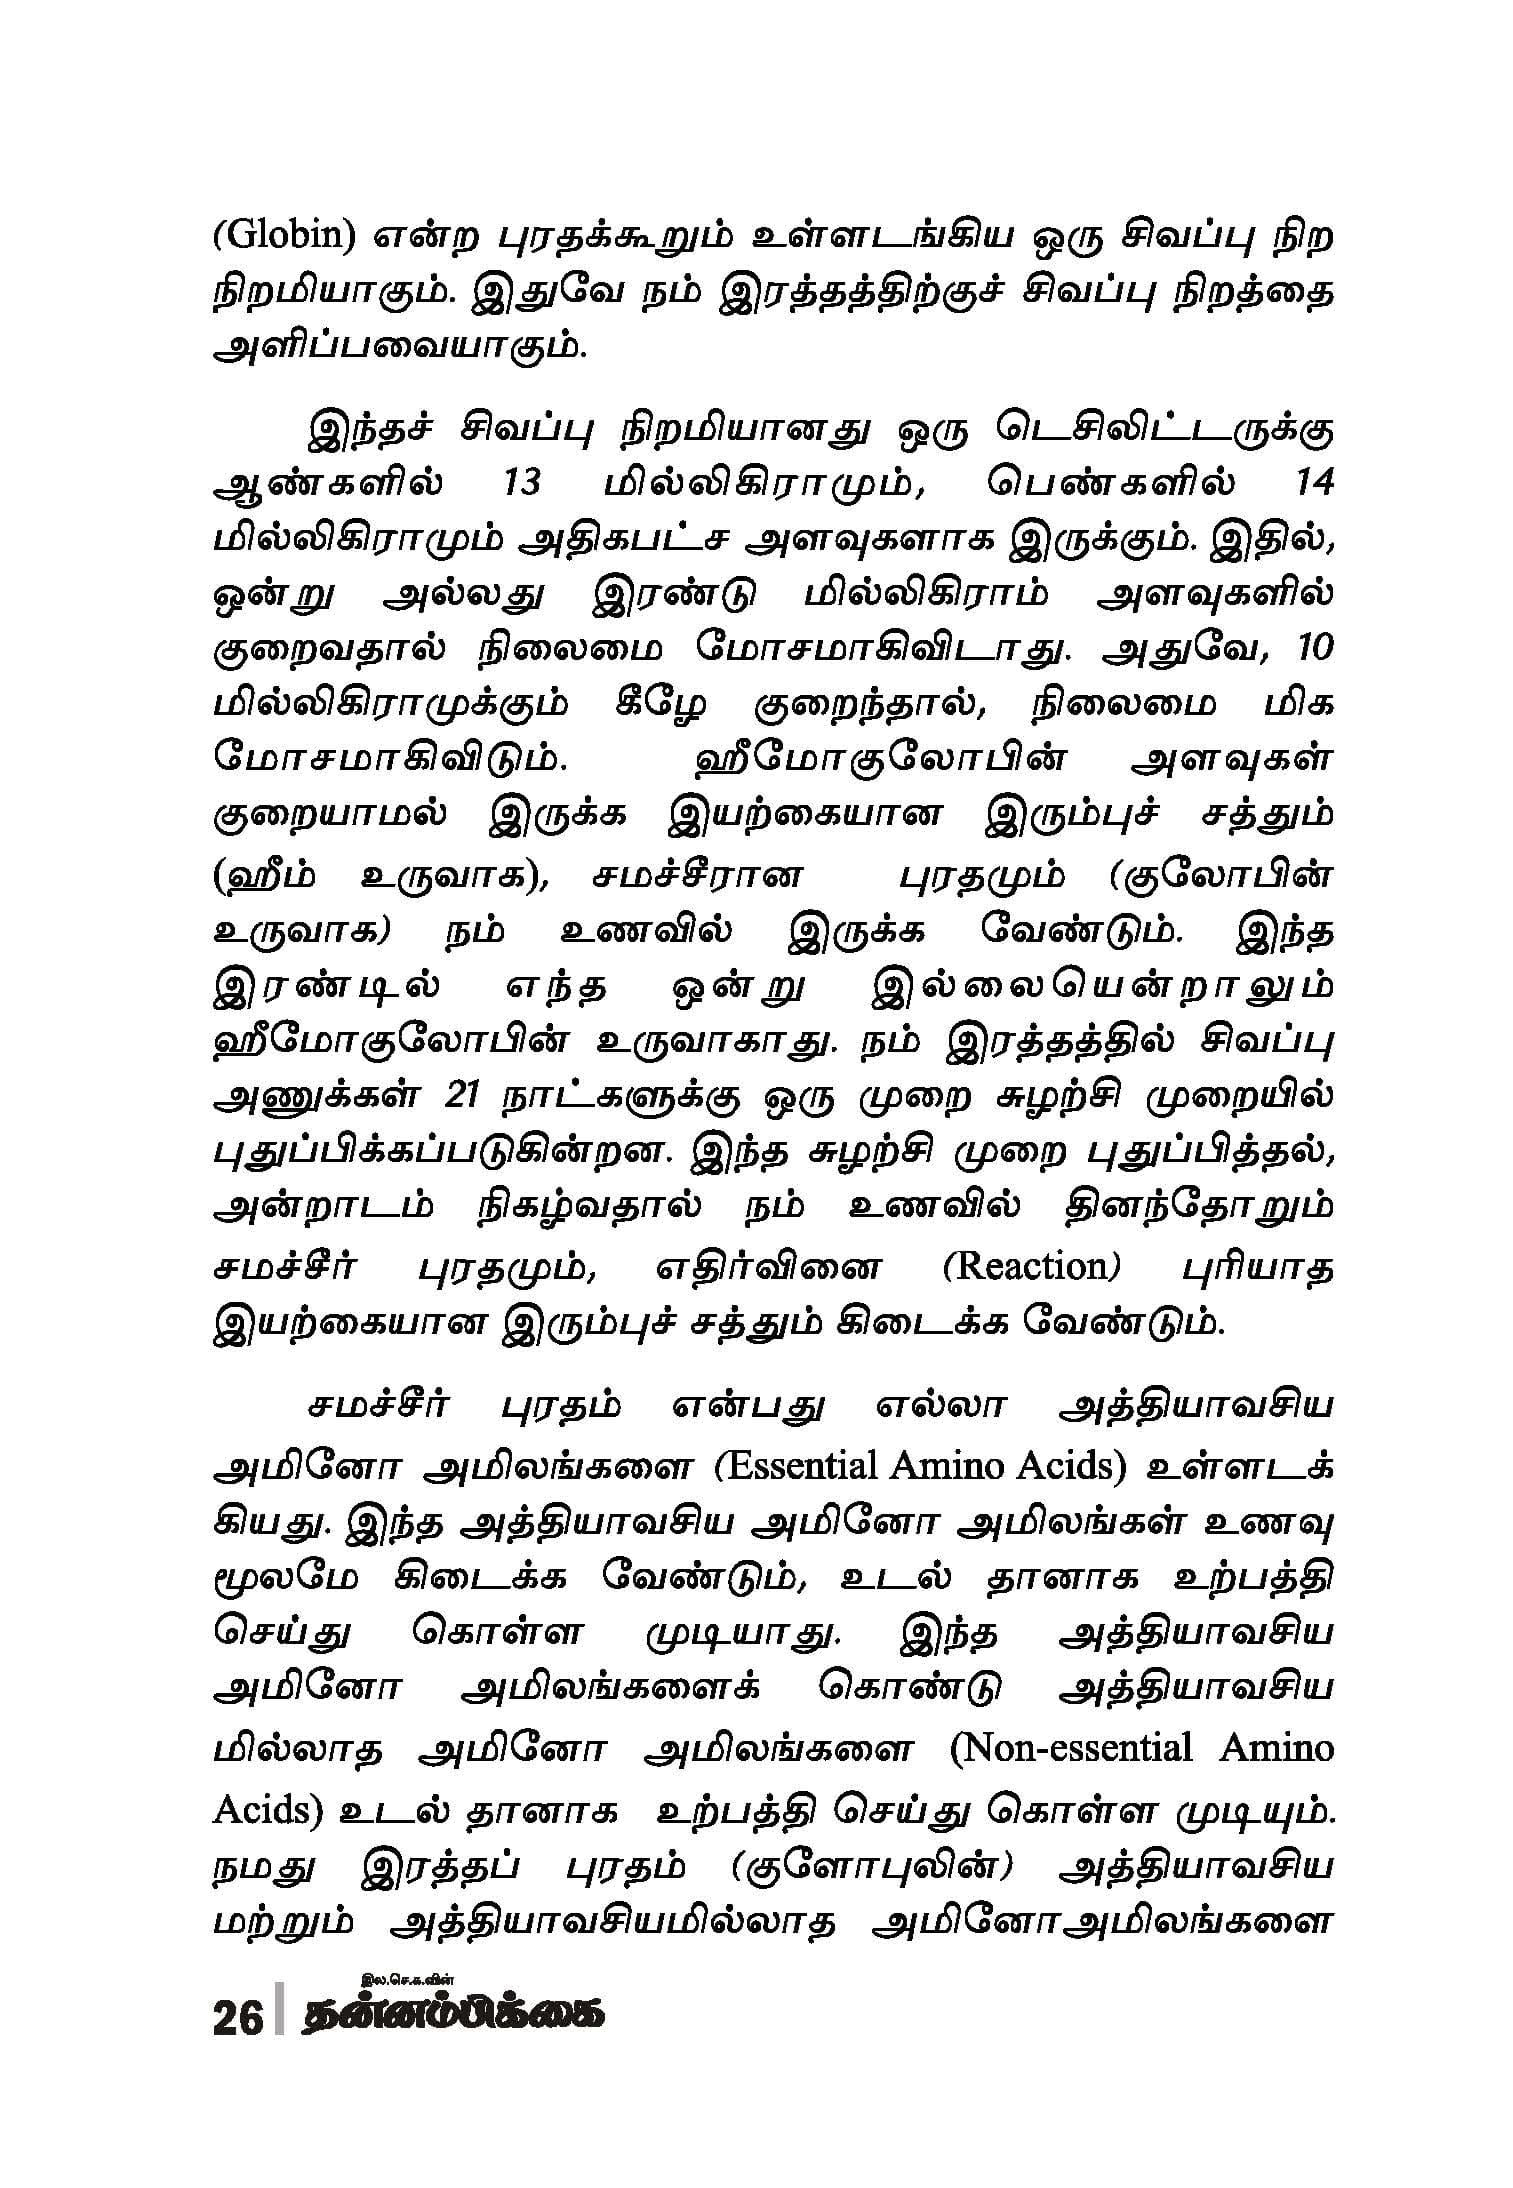 (Globin) என்ற புரதக்கூறும் உள்ளடங்கிய ஒரு சிவப்பு நிற
நிறமியாகும். இதுவே நம் இரத்தத்திற்குச் சிவப்பு நிறத்தை
அளிப்பவையாகும்.
இந்தச் சிவப்பு நிறமியானது ஒரு டெசிலிட்டருக்கு
ஆண்களில் 13 மில்லிகிராமும், பெண்களில் 14
மில்லிகிராமும் அதிகபட்ச அளவுகளாக இருக்கும். இதில்,
ஒன்று அல்லது இரண்டு மில்லிகிராம் அளவுகளில்
குறைவதால் நிலைமை மோசமாகிவிடாது. அதுவே, 10
மில்லிகிராமுக்கும் கீழே குறைந்தால், நிலைமை மிக
மோசமாகிவிடும். ஹீமோகுலோபின் அளவுகள்
குறையாமல் இருக்க இயற்கையான இரும்புச் சத்தும்
(ஹீம் உருவாக), சமச்சீரான புரதமும் (குலோபின்
உருவாக) நம் உணவில் இருக்க வேண்டும். இந்த
இரண்டில் எந்த ஒன்று இல்லையென்றாலும்
ஹீமோகுலோபின் உருவாகாது. நம் இரத்தத்தில் சிவப்பு
அணுக்கள் 21 நாட்களுக்கு ஒரு முறை சுழற்சி முறையில்
புதுப்பிக்கப்படுகின்றன. இந்த சுழற்சி முறை புதுப்பித்தல்,
அன்றாடம் நிகழ்வதால் நம் உணவில் தினந்தோறும்
சமச்சீர் புரதமும், எதிர்வினை (Reaction) புரியாத
இயற்கையான இரும்புச் சத்தும் கிடைக்க வேண்டும்.
சமச்சீர் புரதம் என்பது எல்லா அத்தியாவசிய
அமினோ அமிலங்களை (Essential Amino Acids) உள்ளடக்
கியது. இந்த அத்தியாவசிய அமினோ அமிலங்கள் உணவு
மூலமே கிடைக்க வேண்டும், உடல் தானாக உற்பத்தி
செய்து கொள்ள முடியாது. இந்த அத்தியாவசிய
அமினோ அமிலங்களைக் கொண்டு அத்தியாவசிய
மில்லாத அமினோ அமிலங்களை (Non-essential Amino
Acids) உடல் தானாக உற்பத்தி செய்து கொள்ள முடியும்.
நமது இரத்தப் புரதம் (குளோபுலின்) அத்தியாவசிய
மற்றும் அத்தியாவசியமில்லாத அமினோஅமிலங்களை
இல.செ.க.வின்
26 தன்னம்பிக்கை